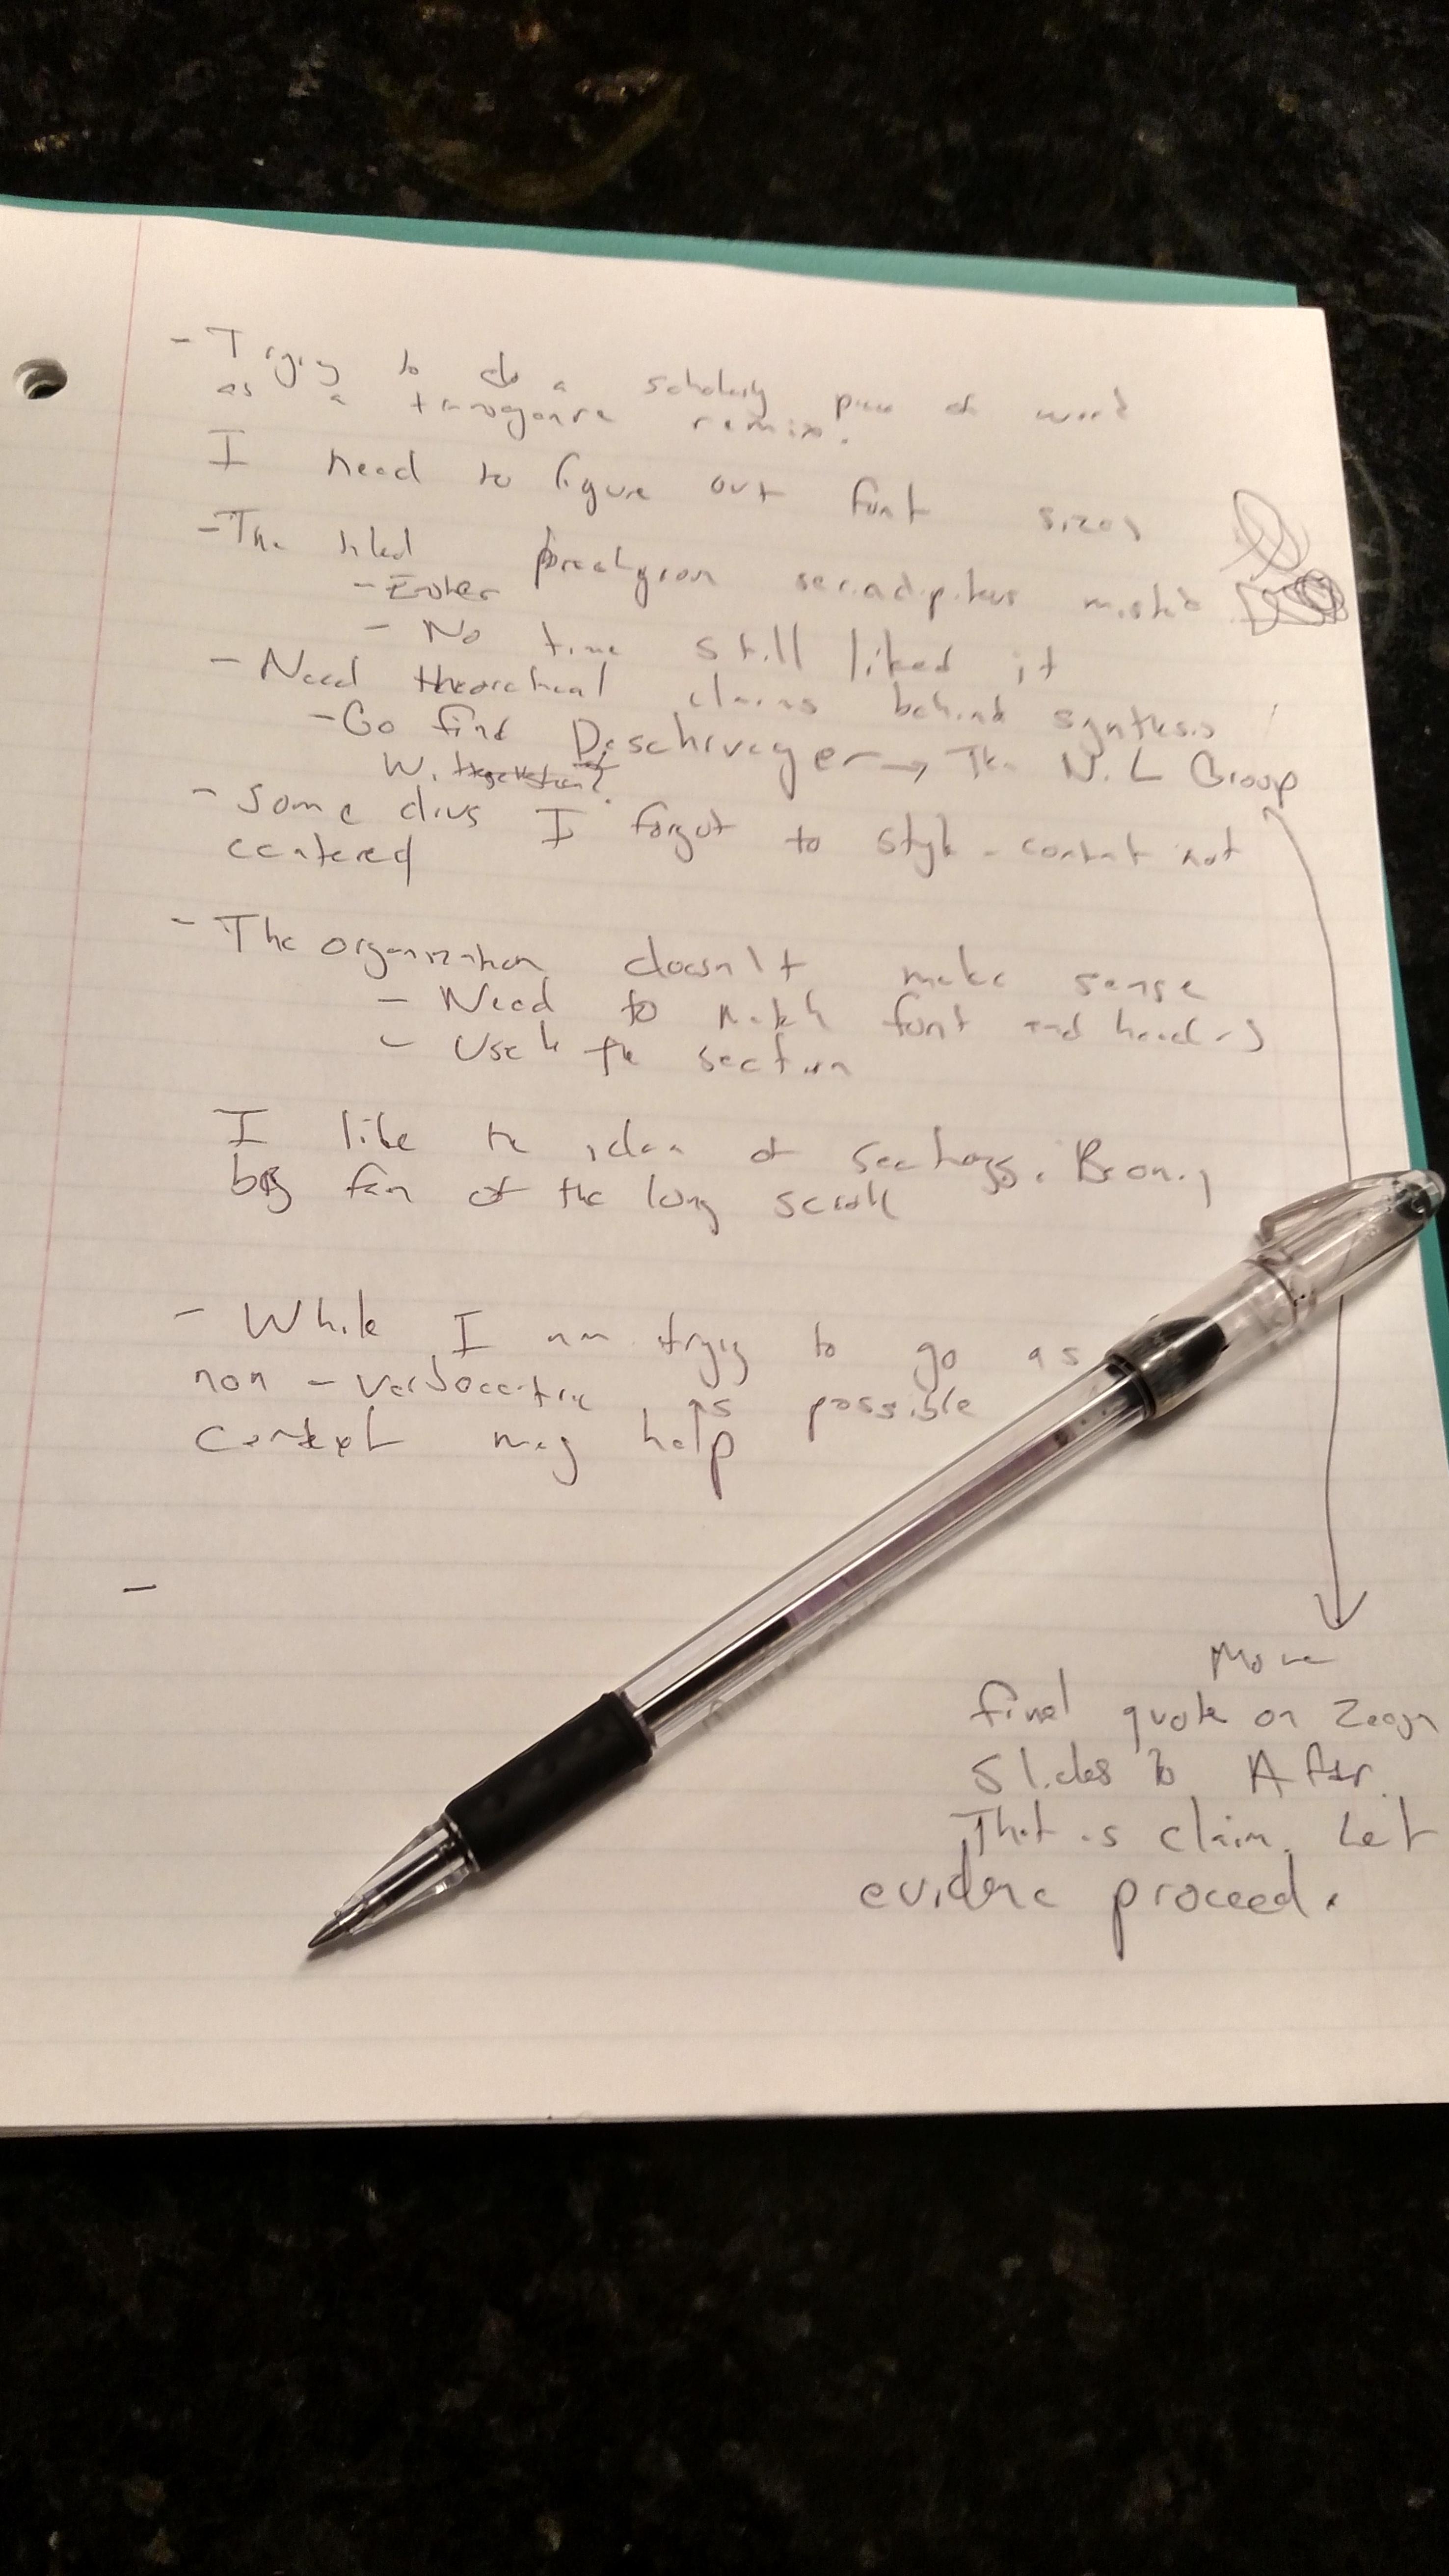 - Trying to do a scholarly piece of work
as a transgenre remix.
I need to figure out font sizes
- The tiled serindipitus mistake
- Either
- No time still liked it
- Need theoretical claims behind syntesis
- Go find Deschrvyer → The N.L Group
- Some divs I forgot to style - content not
centered
- The organization doesn't make sense
- Need to match font and headers
- Use the section
I like the idea of sections. Being
big fan of the long scroll
- While I am trying to go as
non-verbocentric as possible
context may help
-
Move
final quote on
Slides to After.
That is claim. Let
evidence proceed.